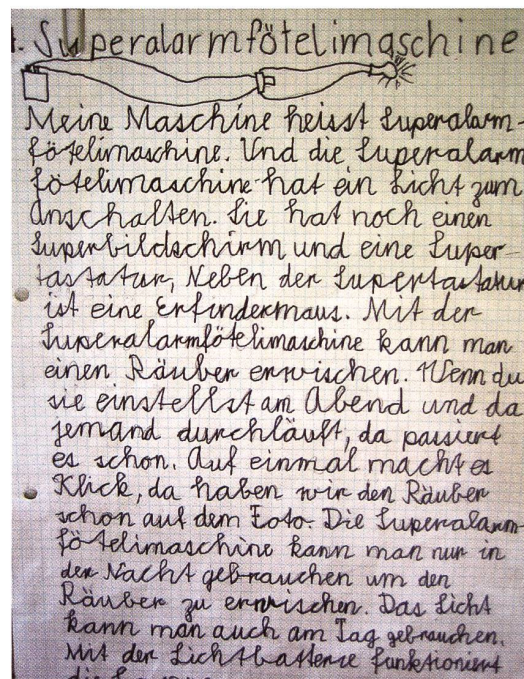 . Superalarmfötelimaschine
Meine Maschine heisst Superalarm-
fötelimaschine. Und die Superalarm
fötelimaschine hat ein Licht zum
Anschalten. Sie hat noch einen
Superbildschirm und eine Super-
tastatur, Neben der Supertastatur
ist eine Erfindermaus. Mit der
Superalarmfötelimaschine kann man
einen Räuber erwischen. Wenn du
sie einstellst am Abend und da
jemand durchläuft, da passiert
es schon. Auf einmal macht es
Klick, da haben wir den Räuber
schon auf dem Foto. Die Superalarm-
fötelimaschine kann man nur in
der Nacht gebrauchen um den
Räuber zu erwischen. Das Licht
kann man auch am Tag gebrauchen.
Mit der Lichtbatterie funktioniert
die